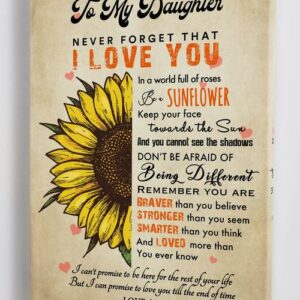 To My Daughter
NEVER FORGET THAT
I LOVE YOU
In a world full of roses
Be a SUNFLOWER
Keep your face
towards the Sun
And you cannot see the shadows
DON'T BE AFRAID OF
Being Different
REMEMBER YOU ARE
BRAVER than you believe
STRONGER than you seem
SMARTER than you think
And LOVED more than
You ever know
I can't promise to be here for the rest of your life
But I can promise to love you till the end of time